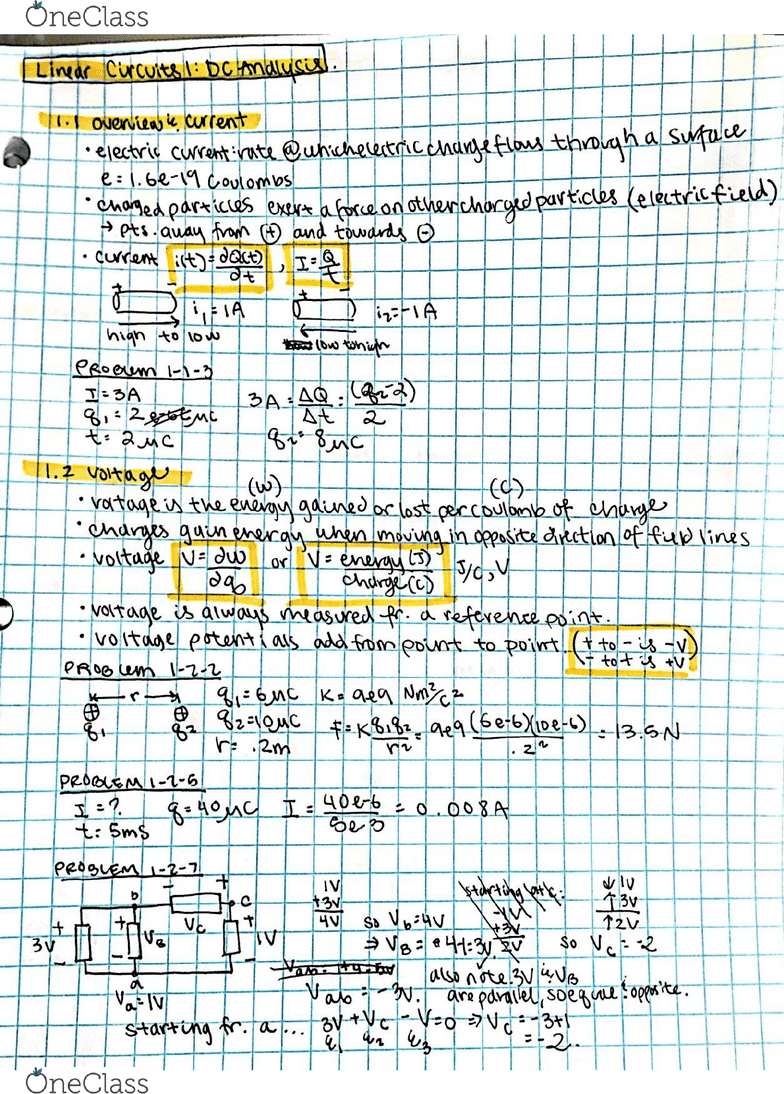 OneClass
Linear Circuits 1: DC Analysis.
1.1 overview & current
• electric current: rate @ which electric charge flows through a surface
e = 1.6e-19 Coulombs
• charged particles exert a force on other charged particles (electric field)
→ pts. away from ⊕ and towards ⊖
• current i(t) = ∂Q(t)/∂t , I = Q/t
+ - i₁ = 1A + - i₂ = -1A
high to low low to high
PROBLEM 1-1-3
I = 3A 3A = ΔQ/Δt = (q₂-2)/2
q₁ = 2 μC
t = 2μC q₂ = 8μC
1.2 voltage
(W) (C)
• voltage is the energy gained or lost per coulomb of charge
• charges gain energy when moving in opposite direction of field lines
• voltage V = ∂w/∂q or V = energy (J)/charge (C) J/C, V
• voltage is always measured fr. a reference point.
• voltage potentials add from point to point. (+ to - is -V
- to + is +V)
PROBLEM 1-2-2
r q₁ = 6μC K = 9e9 Nm²/C²
⊕ ⊕ q₂ = 10μC F = K q₁q₂/r² = 9e9 (6e-6)(10e-6)/.2² = 13.5N
q₁ q₂ r = .2m
PROBLEM 1-2-5
I = ? q = 40μC I = 40e-6/5e-3 = 0.008A
t = 5ms
PROBLEM 1-2-7
- + 1V starting at c: ↓ 1V
b c +3V -1V ↑ 3V
+ + Vc + 4V so Vb = 4V +3V ↑ 2V
3V VB 1V ⇒ VB = 4-1 = 3V 2V so Vc = -2
- - - also note 3V & VB
a Vab = -3V. are parallel, so equal & opposite.
Va = 1V
starting fr. a ... 3V + Vc - V = 0 ⇒ Vc = -3+1
= -2.
OneClass